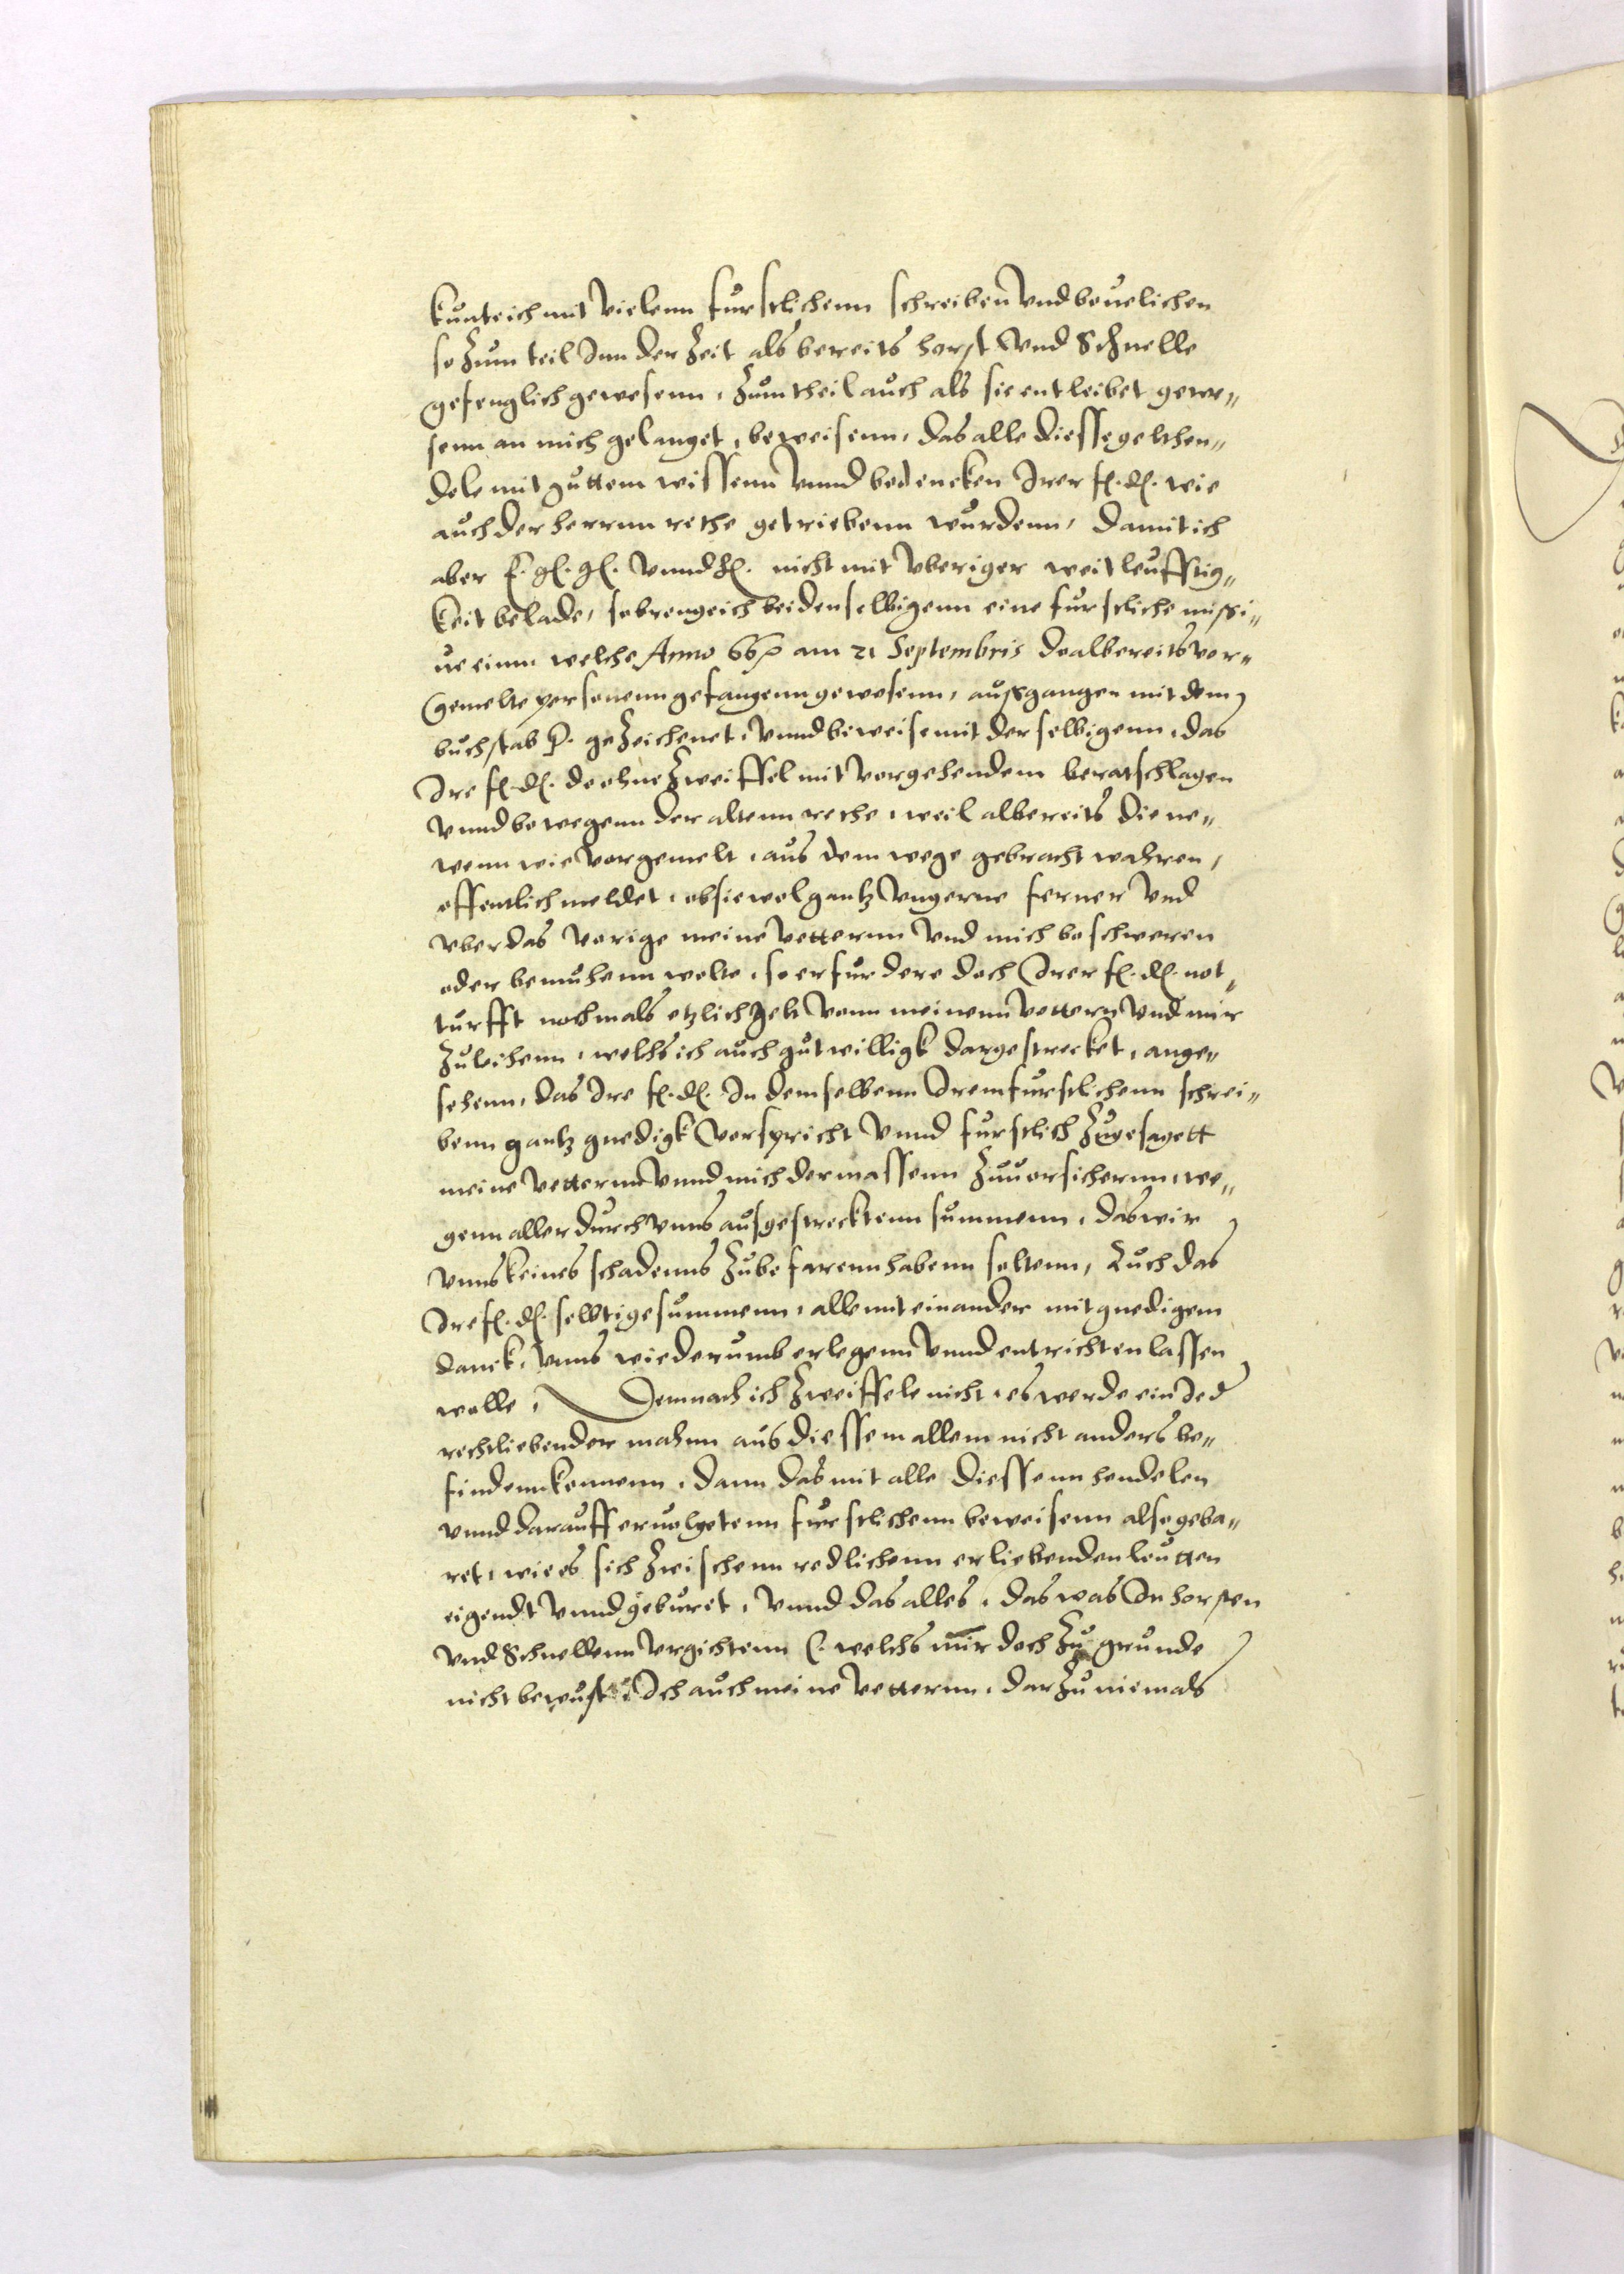 kunte ich mit vielenn furstlichenn schreiben vnd beuelichen
so zum teil Inn der zeit als bereits Horst vnd Schnelle
gefenglich gewesenn, zum theil auch als sie entleibet gewe-
senn an mich gelanget, beweisenn, das alle diesse gelthen-
dele mit guttem wissenn vnnd bedencken Irer f. d. wie
auch der herrnn rethe getriebenn wurdenn, damit ich
aber E. g. g. vnnd h. nicht mit vberiger weitleufftig-
keit belade, so brenge ich bei denselbigenn eine furstliche missi-
ue einn, welche Anno 66 am 21 Septembris do albereits vor-
gemelte personenn gefangenn gewesenn, aussgangen mit dem
buchstab P. gezeichenet, vnnd beweise mit derselbigenn, das
Ire f. d. do ohne zweiffel mit vorgehendem beratschlagen
vnnd bewegenn der altenn rethe, weil albereits die ne-
wenn wie vorgemelt, aus dem wege gebracht wahren,
offentlich meldet, ob sie wol gantz vngerne ferner vnd
vber das vorige meine vetternn vnd mich beschweren
oder bemuhenn wolte, so erfurdere doch Irer f. d. not-
turfft nochmals etzlich gelt vonn meinenn vettern vnd mir
zuleihenn, welchs ich auch gutwilligk dargestrecket, ange-
sehenn, das Ire f. d. In demselbenn Irem furstlichenn schrei-
benn gantz gnedigk verspricht vnnd furstlich zugesagett
meine vetternn vnnd mich dermassenn zuuorsichernn, we-
genn aller durch vnns ausgestrecktenn summenn, das wir
vnns keines schadenns zubefarenn habenn soltenn, Auch das
Ire f. d. selbtige summenn, alle mit einander mit gnedigem
danck, vnns wiederumb erlegenn vnnd entrichten lassen
wolle, Demnach ich zweiffele nicht, es werde ein Ied
rechtliebender mahnn aus diessem allem nicht anders be-
findenn kennenn, dann das mit alle diessenn hendelen
vnnd darauff eruolgetenn furstlichenn beweisenn also geba-
ret, wie es sich zwischenn redlichenn erliebenden leutten
eigendt vnnd geburet, vnnd das alles, das was In Horsten
vnd Schnellenn vrgichtenn (. welchs mir doch zu grunde
nicht bewust .) Ich auch meine vetternn, darzu niemals